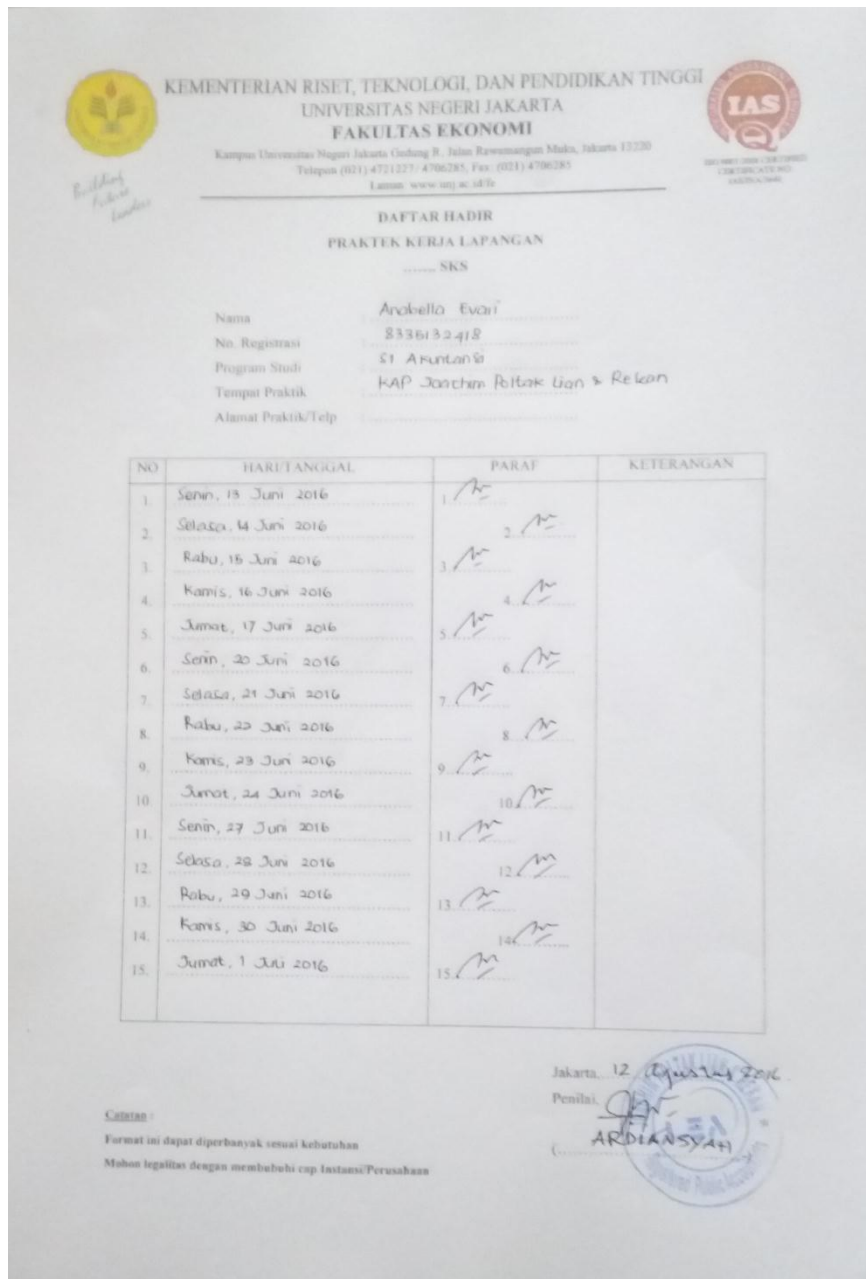 KEMENTERIAN RISET, TEKNOLOGI, DAN PENDIDIKAN TINGGI
UNIVERSITAS NEGERI JAKARTA
FAKULTAS EKONOMI
Kampus Universitas Negeri Jakarta Gedung R, Jalan Rawamangun Muka, Jakarta 13220
Telepon (021) 4721227/ 4706285, Fax: (021) 4706285
Laman: www.unj.ac.id/fe
IAS
Building
Future
Leaders
DAFTAR HADIR
PRAKTEK KERJA LAPANGAN
........ SKS
Nama : Anabella Evari
No. Registrasi : 8335132418
Program Studi : S1 Akuntansi
Tempat Praktik : KAP Joachim Poltak Lian & Rekan
Alamat Praktik/Telp :
NO HARI/TANGGAL PARAF KETERANGAN
1. Senin, 13 Juni 2016 1.
2. Selasa, 14 Juni 2016 2.
3. Rabu, 15 Juni 2016 3.
4. Kamis, 16 Juni 2016 4.
5. Jumat, 17 Juni 2016 5.
6. Senin, 20 Juni 2016 6.
7. Selasa, 21 Juni 2016 7.
8. Rabu, 22 Juni 2016 8.
9. Kamis, 23 Juni 2016 9.
10. Jumat, 24 Juni 2016 10.
11. Senin, 27 Juni 2016 11.
12. Selasa, 28 Juni 2016 12.
13. Rabu, 29 Juni 2016 13.
14. Kamis, 30 Juni 2016 14.
15. Jumat, 1 Juli 2016 15.
Jakarta, 12 Agustus 2016
Penilai,
(ARDIANSYAH
Catatan :
Format ini dapat diperbanyak sesuai kebutuhan
Mohon legalitas dengan membubuhi cap Instansi/Perusahaan